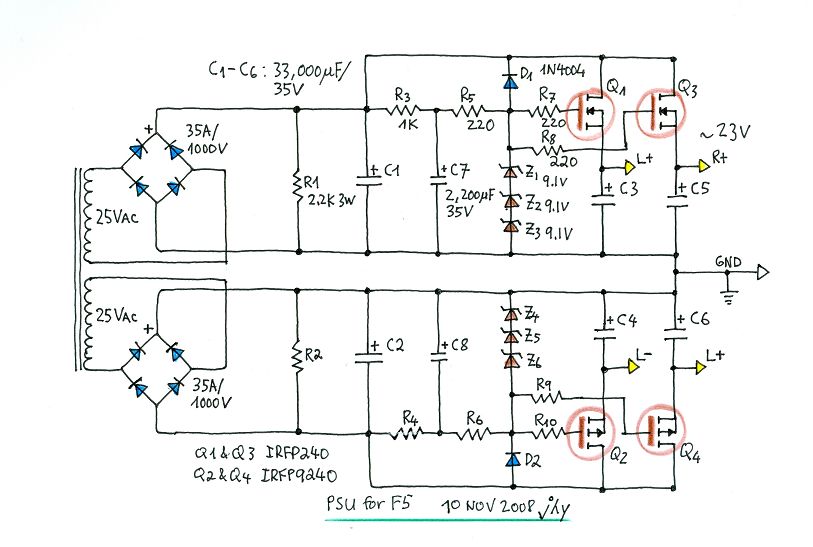 C1-C6: 33,000µF/
35V
D1 1N4004
Q1
Q3
R3
1K
R5
220
R7
220
R8
220
~23V
+
35A/
1000V
25VAC
R1
2.2K 3W
+ C1
+ C7
2,200µF
35V
Z1 9.1V
Z2 9.1V
Z3 9.1V
L+
R+
+ C3
+ C5
GND
25VAC
+
35A/
1000V
R2
+ C2
+ C8
Z4
Z5
Z6
+ C4
+ C6
L-
L+
R9
R4
R6
R10
D2
Q2
Q4
Q1 & Q3 IRFP240
Q2 & Q4 IRFP9240
PSU for F5 10 NOV 2008